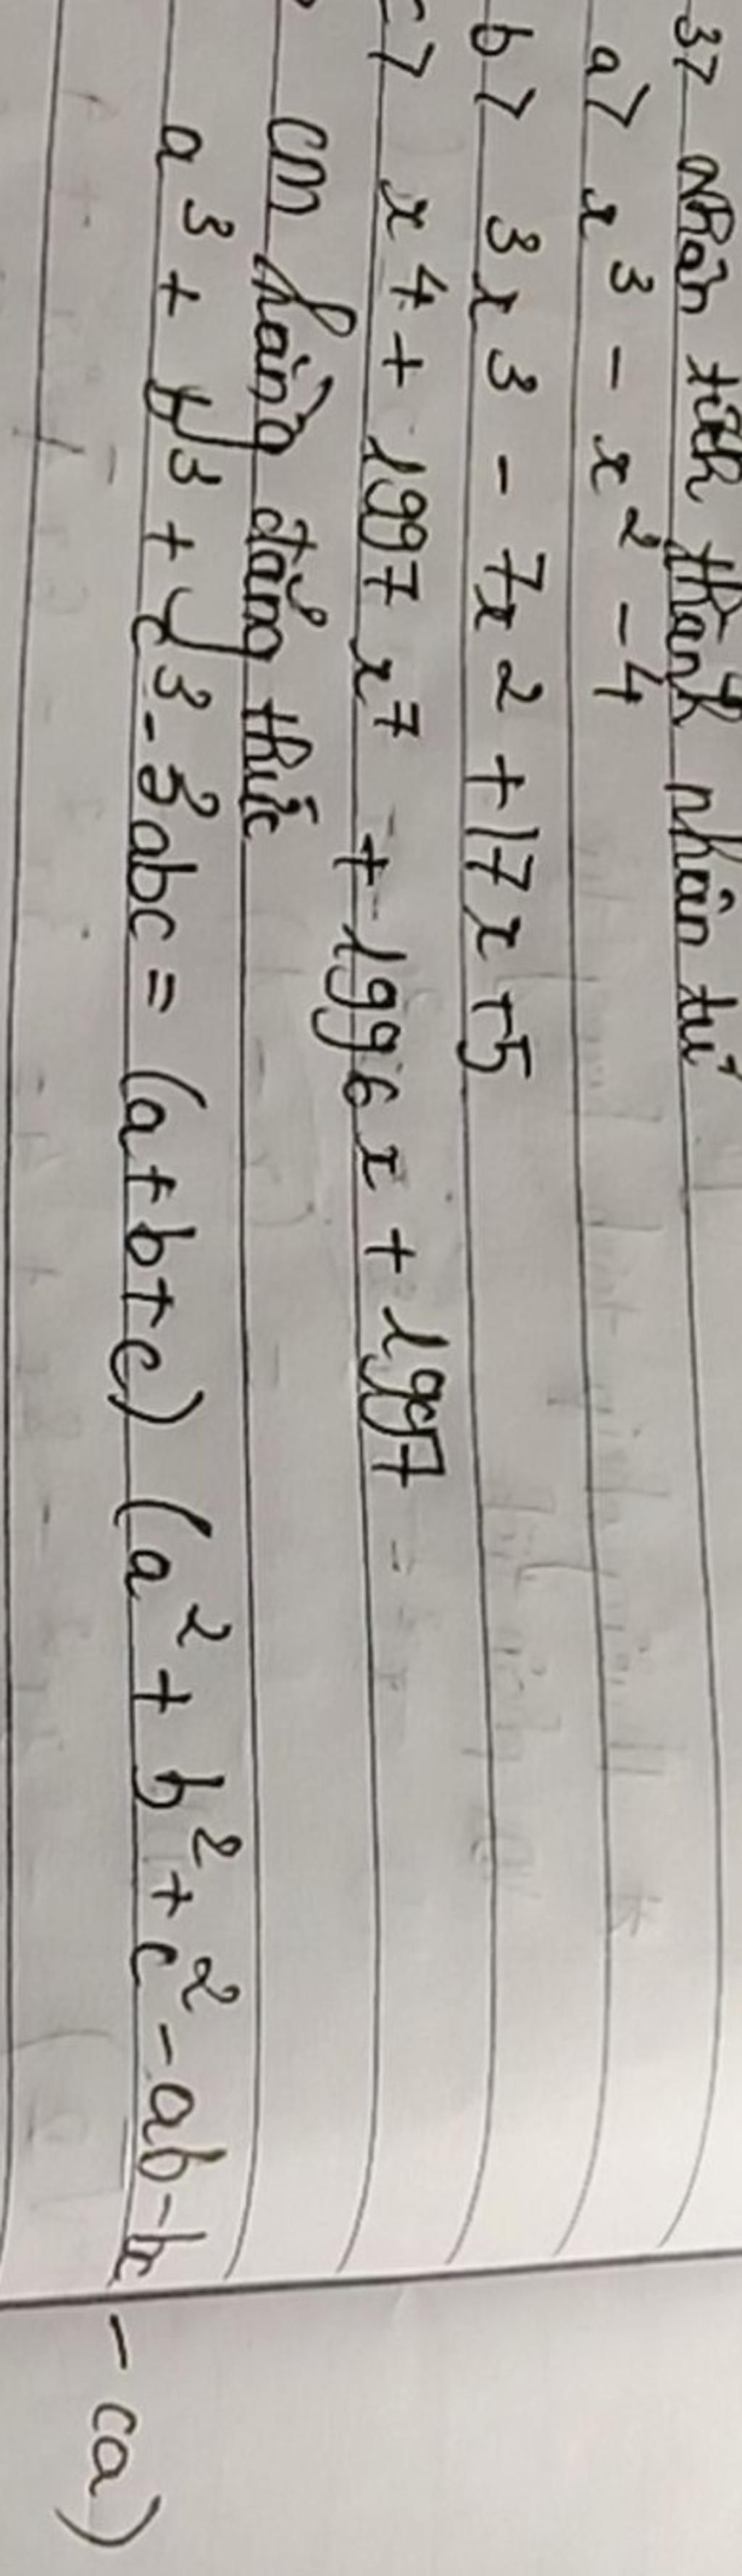 3> Phân tích thành nhân tử
a> x³ - x² - 4
b> 3x³ - 7x² + 17x + 5
c> x⁴ + 1997x⁷ + 1996x + 1997
cm hằng đẳng thức
a³ + b³ + c³ - 3abc = (a+b+c) (a² + b² + c² - ab - bc - ca)